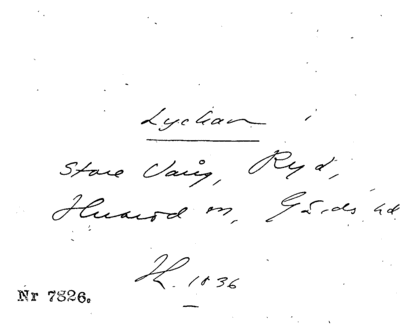 Lyckan
Store Vång, Ryd,
Huaröd sn, Gärds hd
H. 1836
Nr 7826.